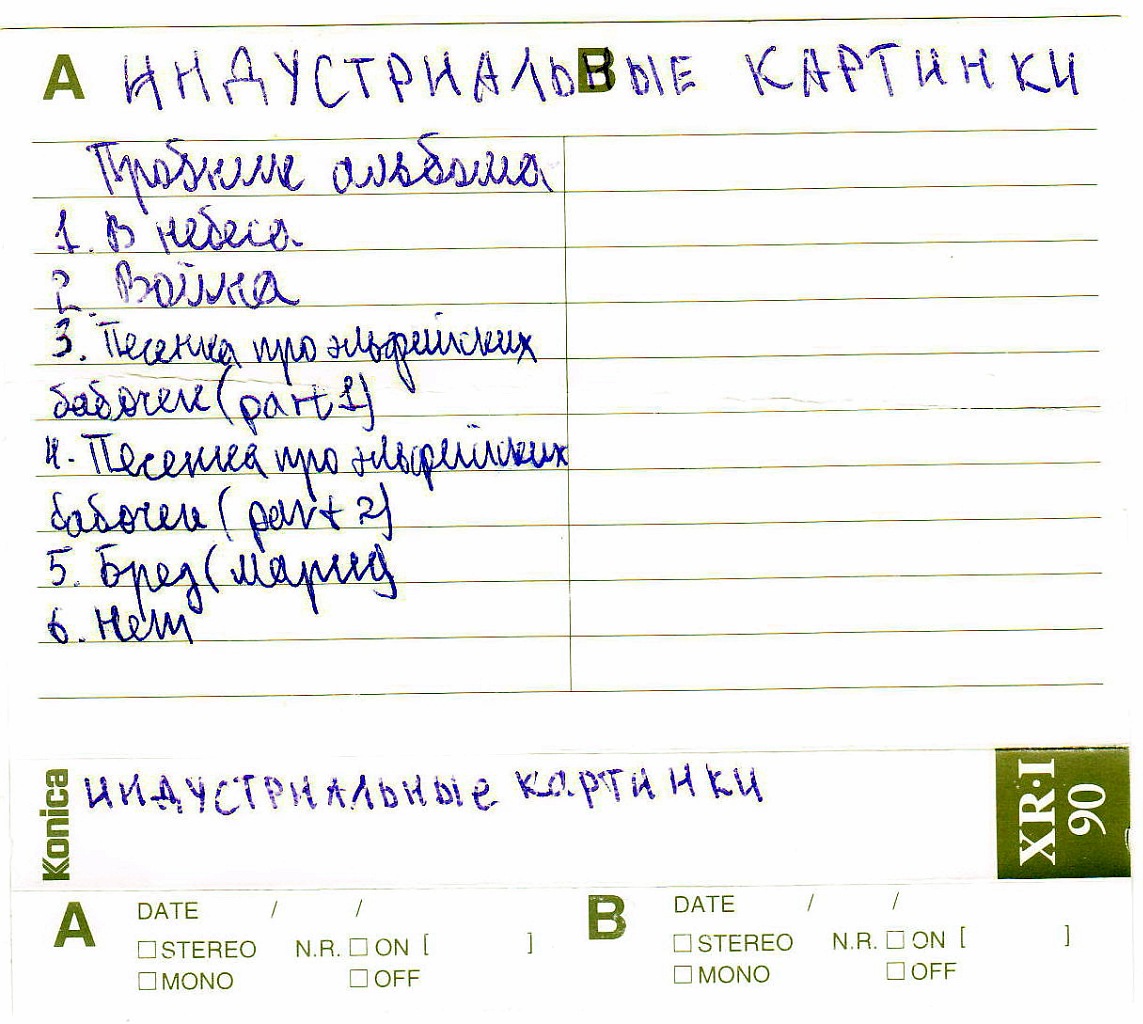 A B
ИНДУСТРИАЛЬНЫЕ КАРТИНКИ
альбома
1. В небеса
2. Война
3. Песенка про эльфийских
бабочек (part 1)
4. Песенка про эльфийских
бабочек (part 2)
5. Бред (
6. Нет
Konica
ИНДУСТРИАЛЬНЫЕ КАРТИНКИ
XR·I
90
A DATE / /
STEREO N.R. ON [ ]
MONO OFF
B DATE / /
STEREO N.R. ON [ ]
MONO OFF